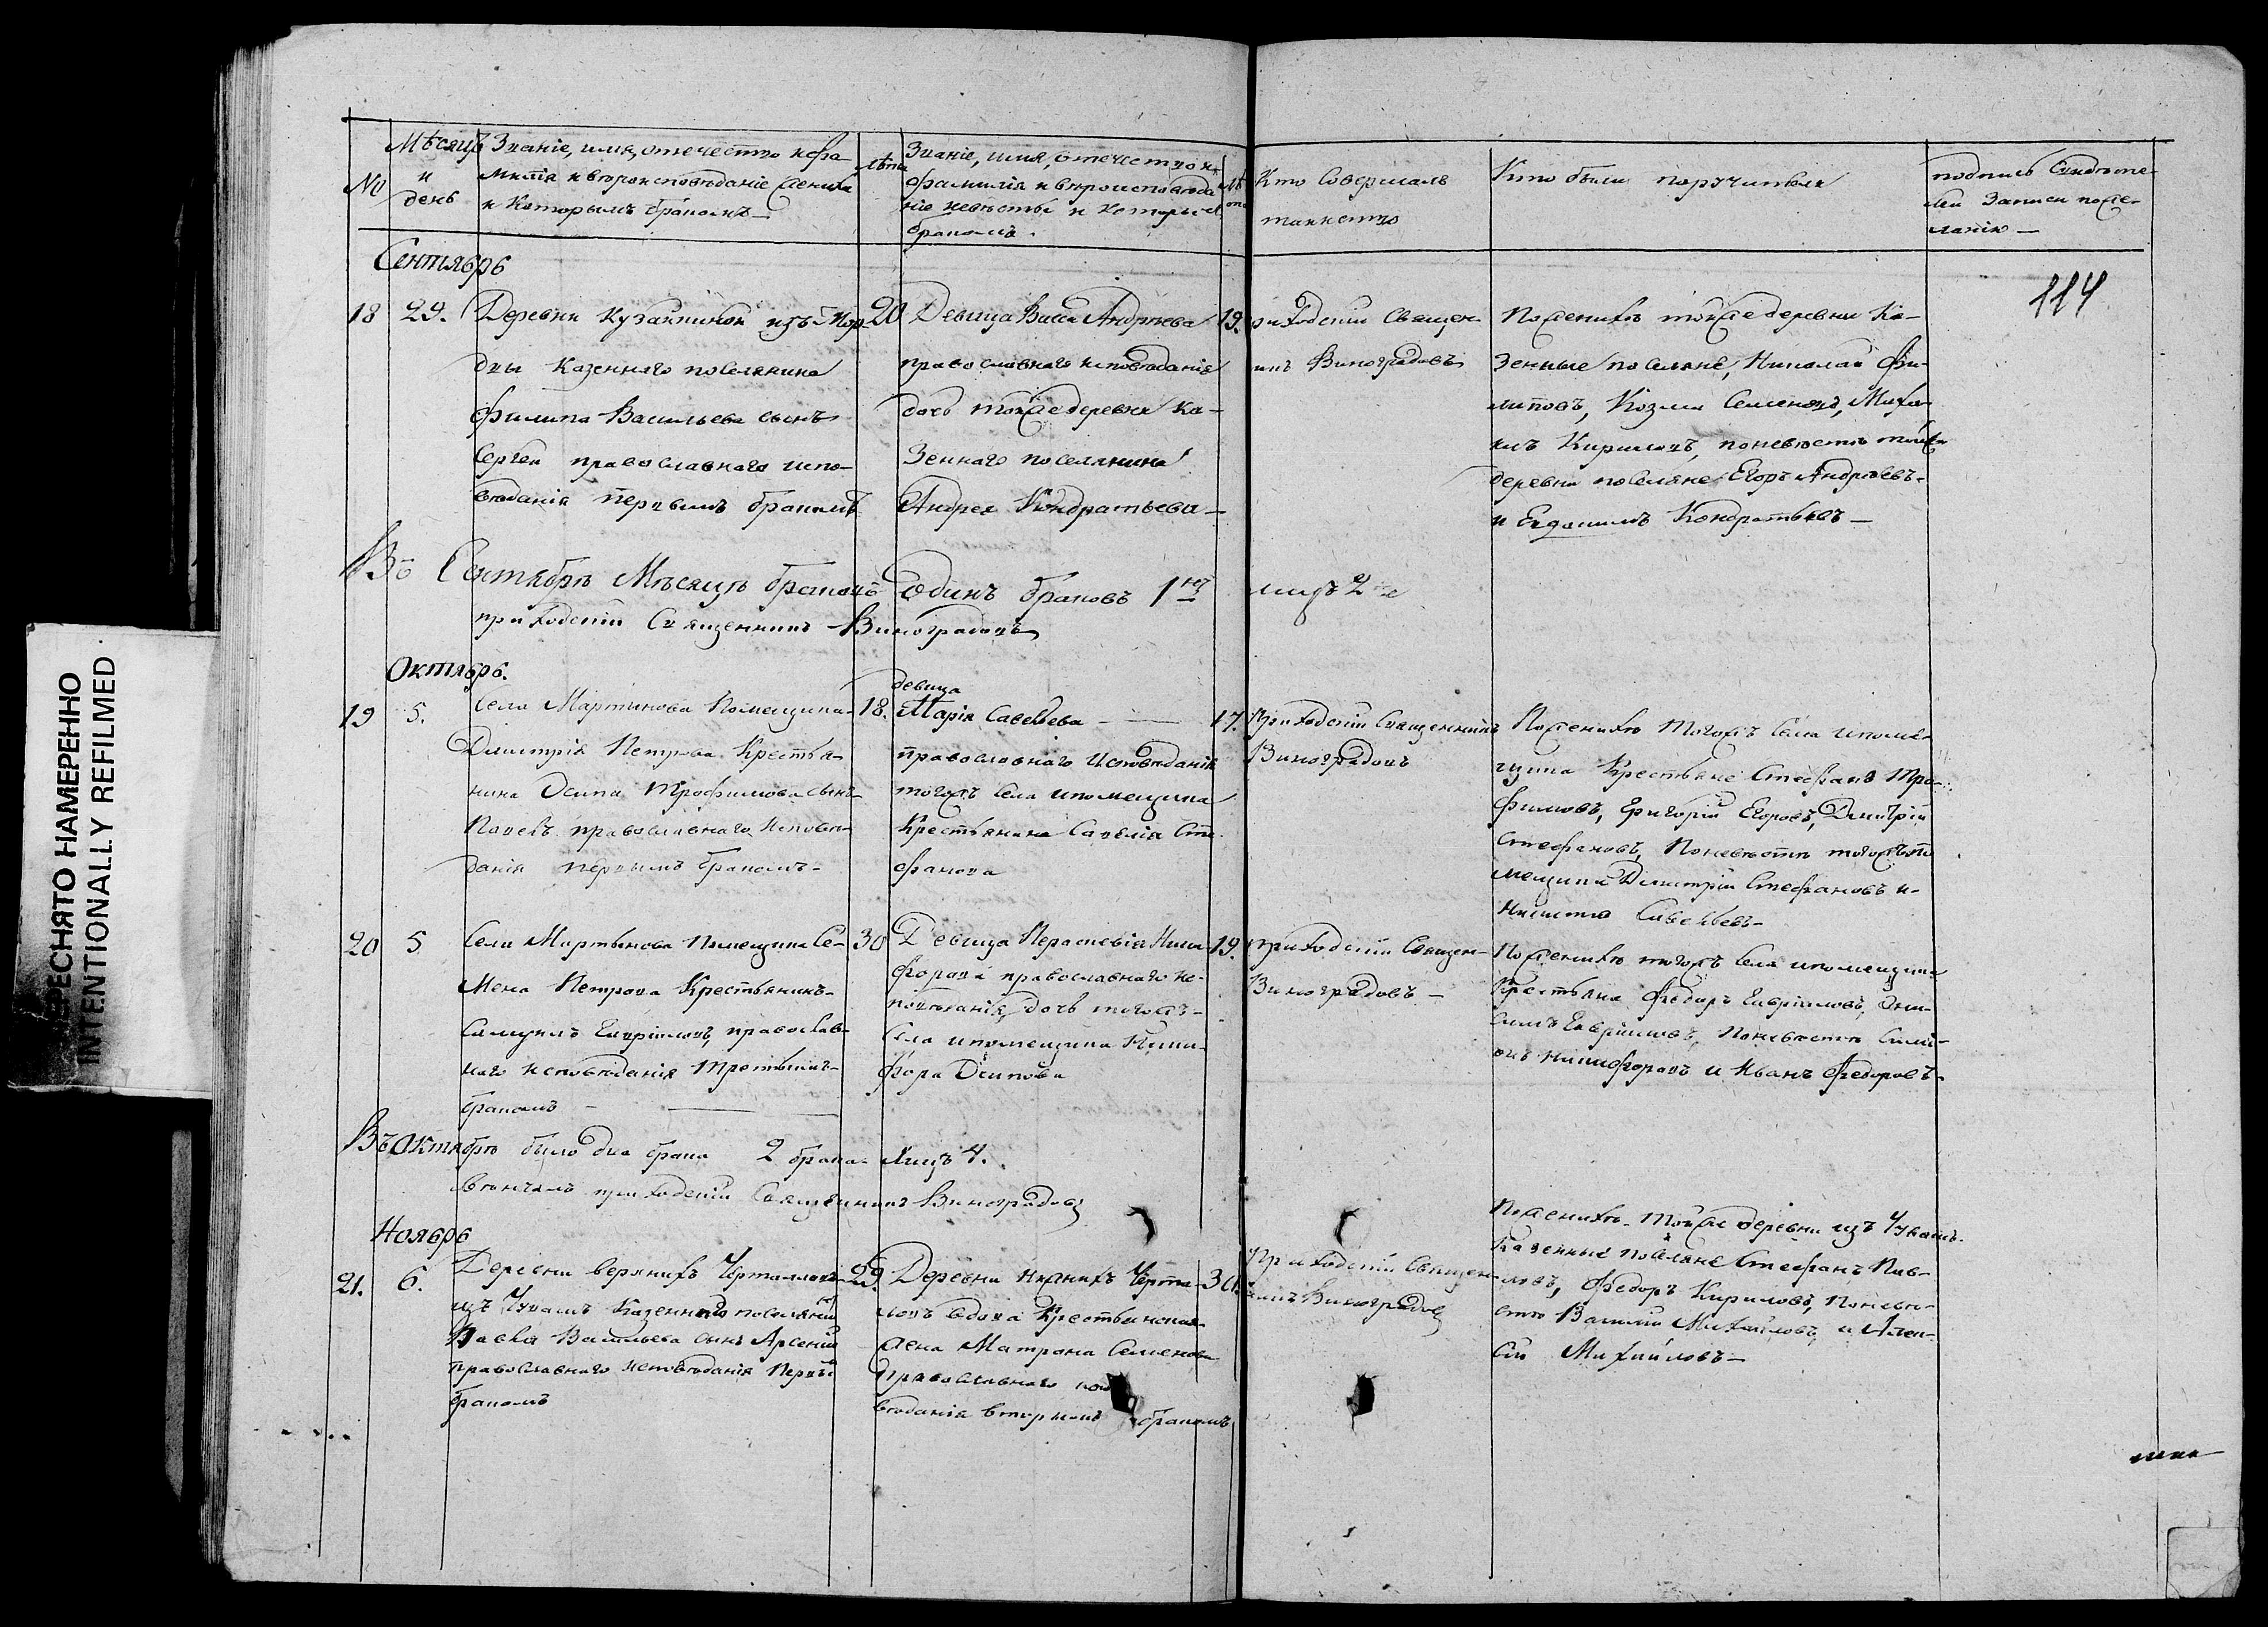 ПЕРЕСНЯТО НАМЕРЕННО
INTENTIONALLY REFILMED
№
Мѣсяцъ
и
день
Званіе, имя, отечество и фа-
милія и вѣроисповѣданіе жениха
и которымъ бракомъ —
лѣта
Званіе, имя, отечество и
фамилія и вѣроисповѣда
ніе невѣсты и которымъ
бракомъ.
лѣ
та
Кто совершалъ
таинство
Кто были поручители
подпись свидѣте-
лей записи по же-
ланію —
114
Сентябрь
18
29.
Деревни Кузайкиной изъ Мор
двы казеннаго поселянина
Филипа Васильева сынъ
Сергей православнаго испо-
вѣданія первымъ бракомъ
20
Девица Васса Андрѣева
православнаго исповѣданія
дочь тойже деревни ка-
зеннаго поселянина
Андрея Кондратьева —
19.
приходскій Священ-
никъ Виноградовъ
По женихѣ тойже деревни ка-
зенные поселяне, Николай Фи-
липовъ, Козма Семеновъ, Миха
илъ Кириловъ, по невѣстѣ тойже
деревни поселяне Егоръ Андрѣевъ
и Евдокимъ Кондратьевъ —
Въ Сентябрѣ Мѣсяцѣ браковъ Одинъ браковъ 1 лицъ 2
приходскій Священникъ Виноградовъ
Октябрь.
19
5.
Села Мартынова Помещика
Димитрія Петрова Крестья-
нина Осипа Трофимова сынъ
Павелъ православнаго исповѣ-
данія первымъ бракомъ-
18.
девица
Марія Савельева —
православнаго исповѣданія
тогожъ села и помещика
Крестьянина Савелія Сте
фанова
17.
Приходскій Священникъ
Виноградовъ
По женихѣ тогожъ села и поме-
щика Крестьяне Стефанъ Тро-
фимовъ, Григорій Егоровъ, Димитрій
Стефановъ, По невѣстѣ тогожъ по
мещика Димитрій Стефановъ и
Никита Савельевъ-
20
5
Села Мартынова Помещика Се-
мена Петрова Крестьянинъ-
Самуилъ Гавріиловъ, православ-
наго исповѣданія третьимъ-
бракомъ —
30
Девица Параскевія Ники-
форова православнаго ис-
повѣданія, дочь тогожъ-
села и помещика Ники-
фора Осипова
19.
приходскій Священ-
Виноградовъ —
По женихѣ тогожъ села и помещика
Крестьяна Федоръ Гавріиловъ, Они-
симъ Гавріиловъ, По невѣстѣ Симе-
онъ Никифоровъ и Иванъ Федоровъ-
Въ Октябрѣ было два брака 2 брака- лицъ 4.
вѣнчалъ приходскій Священникъ Виноградовъ
Ноябрь
21.
6.
Деревни верхнихъ Чертамловъ
изъ Чувашъ Казеннаго поселянина
Павла Васильева сынъ Арсеній
православнаго исповѣданія первымъ
бракомъ
Деревни нижнихъ Черта-
ловъ вдова Крестьянская
жена Матрона Семенова
православнаго испо
вѣданія вторымъ бракомъ
Приходскій Священ-
никъ Виноградовъ
По женихѣ- тойже деревни изъ Чувашъ
казенные поселяне Стефанъ Пав-
ловъ, Федоръ Кириловъ, По невѣ-
стѣ Василій Михайловъ, и Алек-
сѣй Михайловъ —